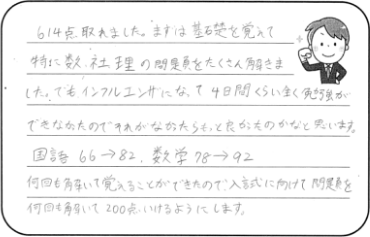 614点取れました。まずは基礎を覚えて
特に数、社、理の問題をたくさん解きま
した。でもインフルエンザになって4日間くらい全く勉強が
できなかったのでそれがなかったらもっと良かったのかなと思います。
国語 66→82、数学 78→92
何回も解いて覚えることができたので、入試に向けて問題を
何回も解いて200点いけるようにします。